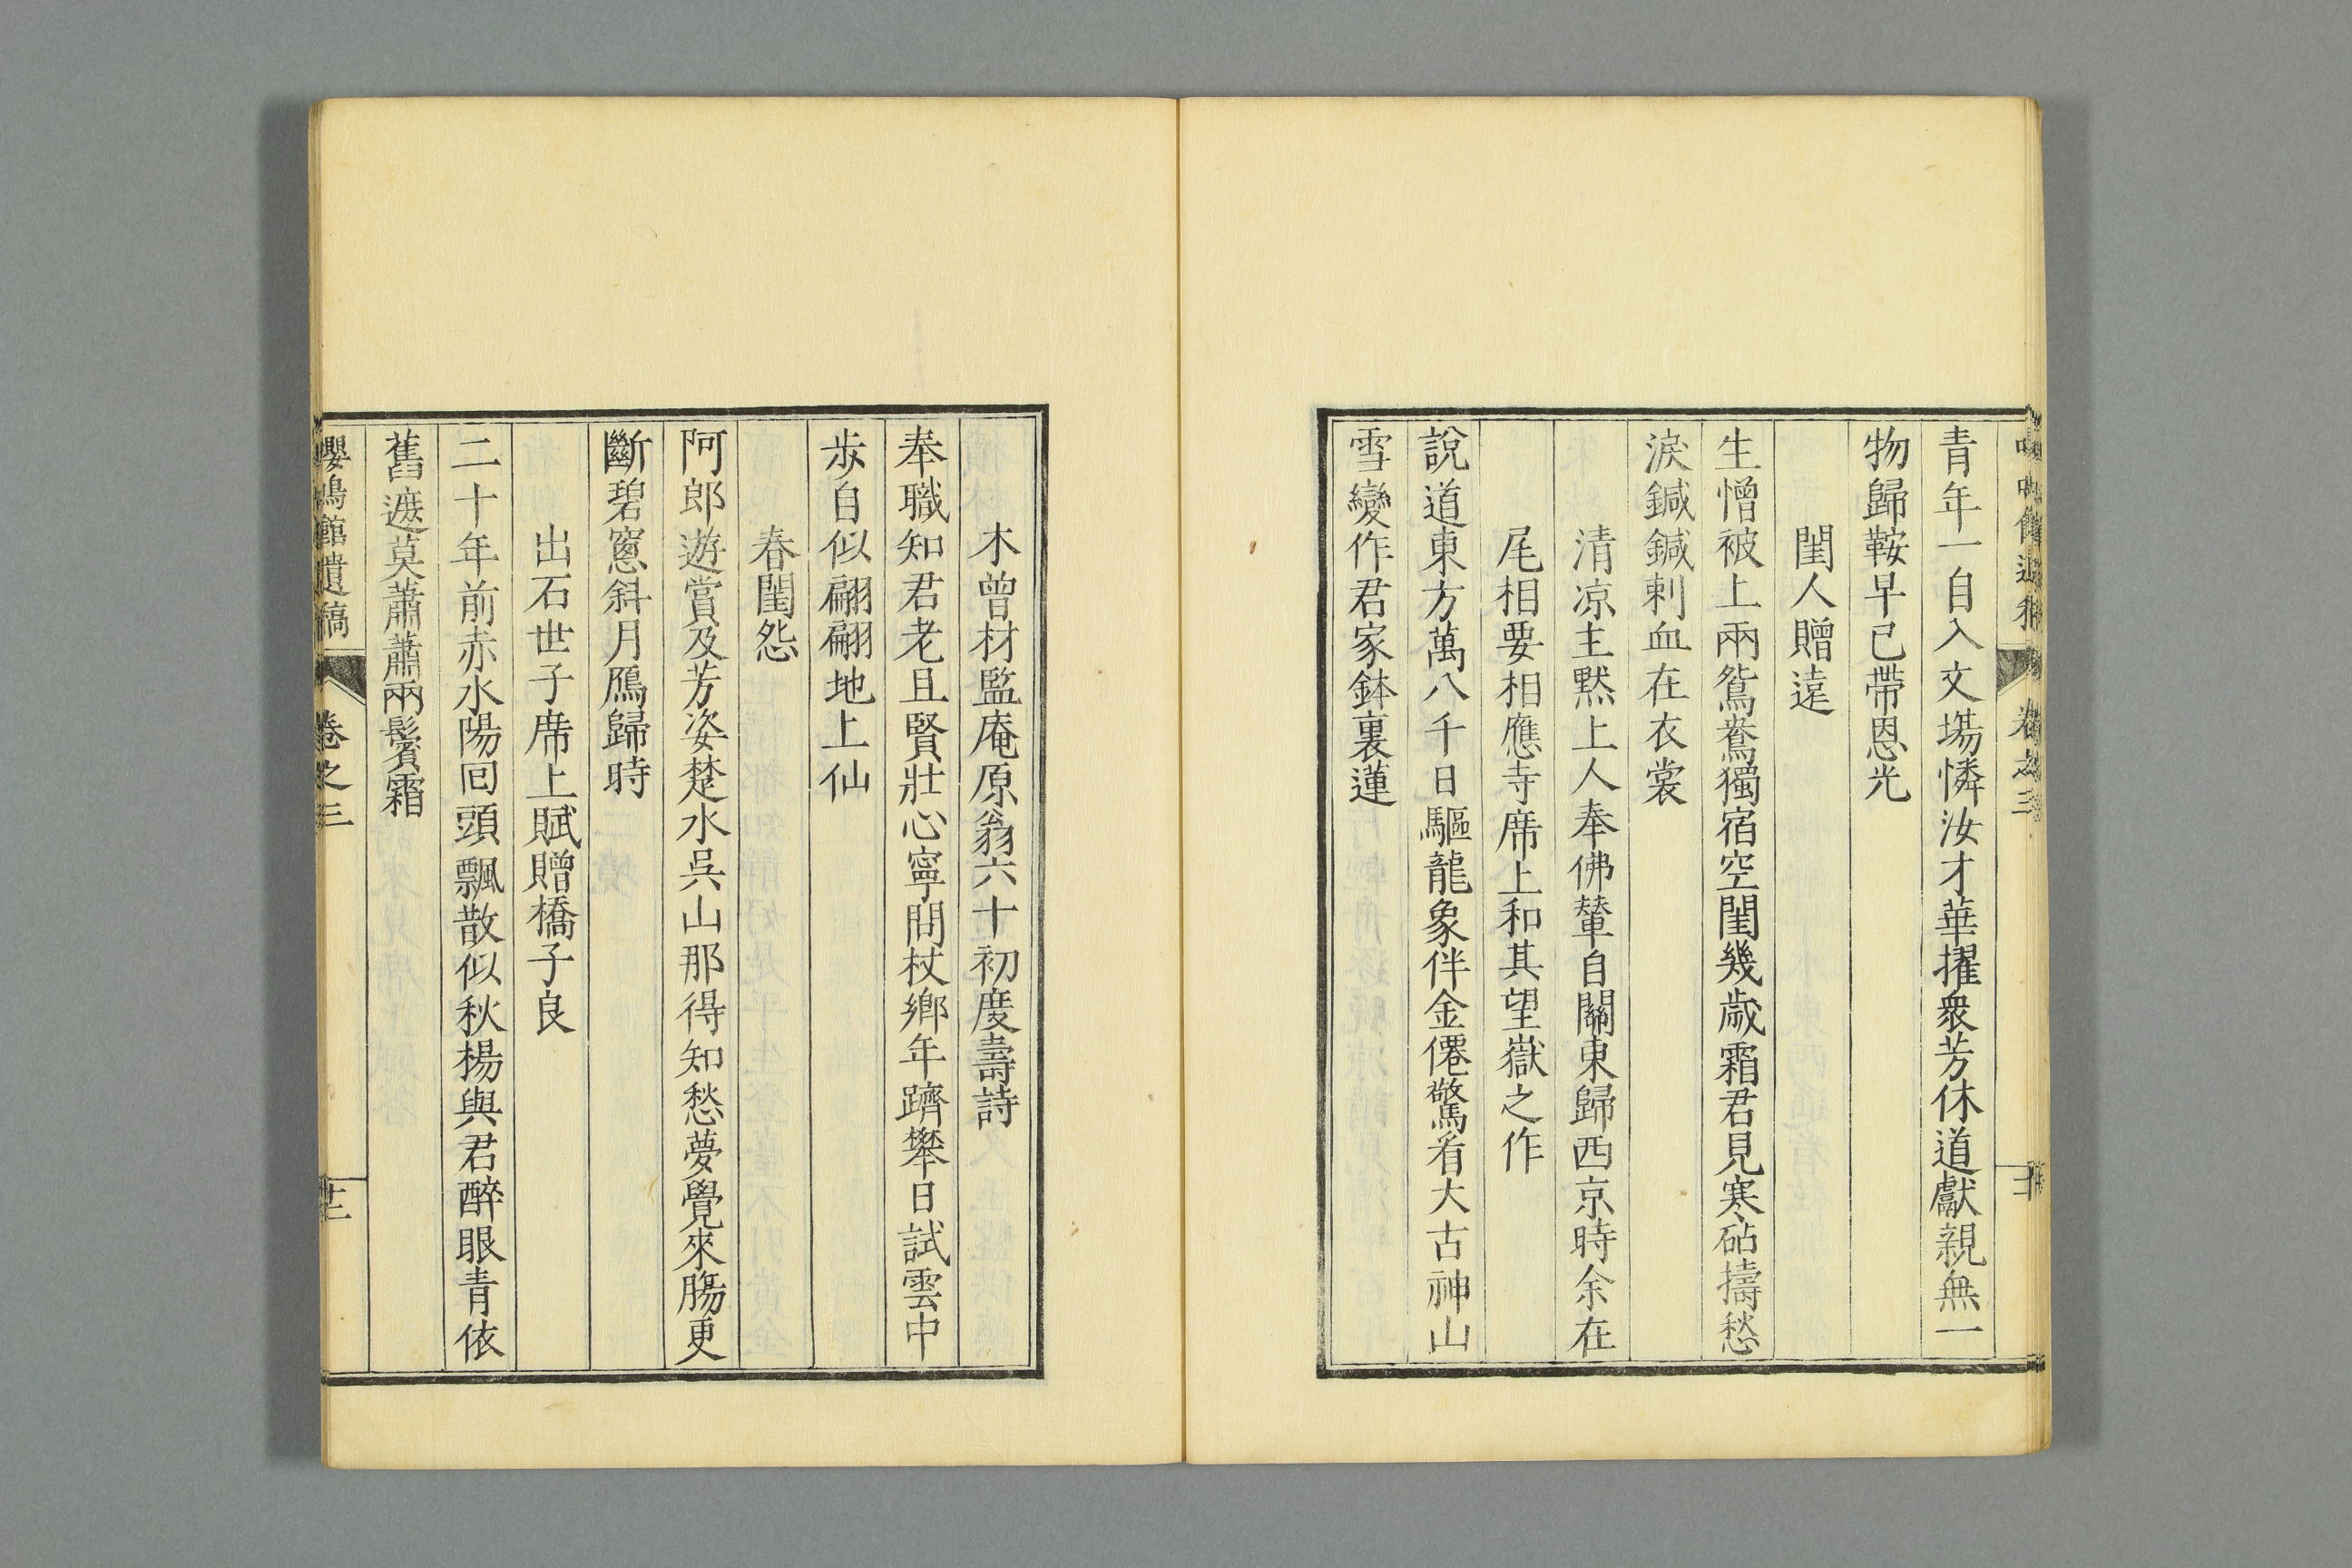 青年一自入文場憐汝才華擢衆芳休道獻親無一
物歸鞍早已帶恩光
閨人贈遠
生憎被上兩鴛鴦獨宿空閨幾歲霜君見寒砧擣愁
淚鍼鍼刺血在衣裳
清凉主黙上人奉佛輦自關東歸西京時余在
尾相要相應寺席上和其望嶽之作
說道東方萬八千日驅龍象伴金僊驚看大古神山
雪變作君家鉢裏蓮
木曾材監庵原翁六十初度壽詩
奉職知君老且賢壯心寧問杖鄉年躋攀日試雲中
歩自似翩翩地上仙
春閨怨
阿郎遊賞及芳姿楚水吳山那得知愁夢覺來膓更
斷碧窻斜月鴈歸時
出石世子席上賦贈橋子良
二十年前赤水陽囘頭飄散似秋楊與君醉眼青依
舊遮莫蕭蕭兩鬢霜
嚶鳴館遺稿 卷之三